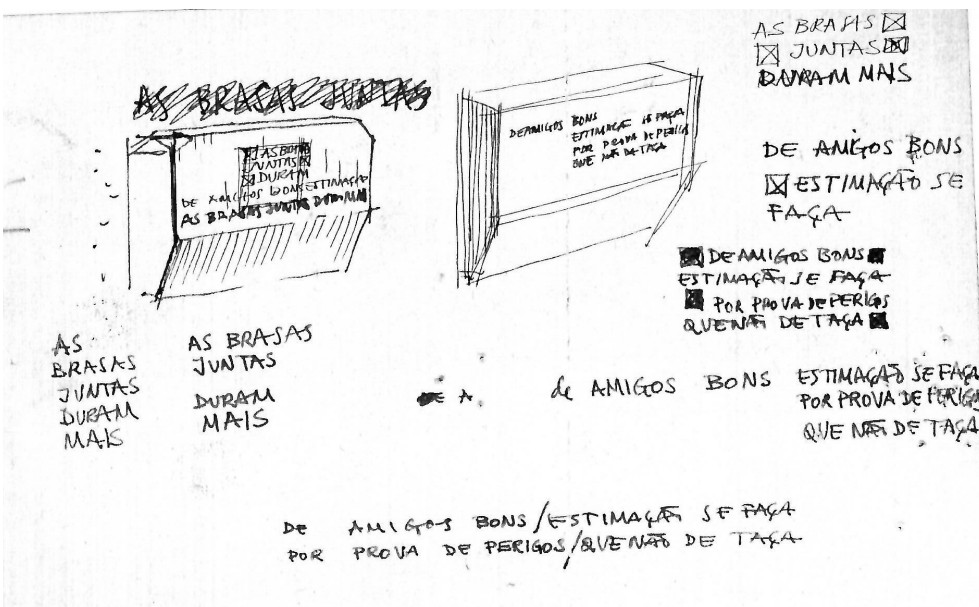 AS BRASAS JUNTAS
AS BRASAS
JUNTAS
DURAM
DE AMIGOS BONS ESTIMAÇÃO
AS BRASAS JUNTAS DURAM
DE AMIGOS BONS
ESTIMAÇÃO SE FAÇA
POR PROVA DE PERIGOS
QUE NÃO DE TAÇA
AS BRASAS
JUNTAS
DURAM MAIS
DE AMIGOS BONS
ESTIMAÇÃO SE
FAÇA
DE AMIGOS BONS
ESTIMAÇÃO SE FAÇA
POR PROVA DE PERIGOS
QUE NÃO DE TAÇA
AS
BRASAS
JUNTAS
DURAM
MAIS
AS BRASAS
JUNTAS
DURAM
MAIS
A
de AMIGOS BONS ESTIMAÇÃO SE FAÇA
POR PROVA DE PERIGO
QUE NÃO DE TAÇA
DE AMIGOS BONS/ESTIMAÇÃO SE FAÇA
POR PROVA DE PERIGOS/QUE NÃO DE TAÇA